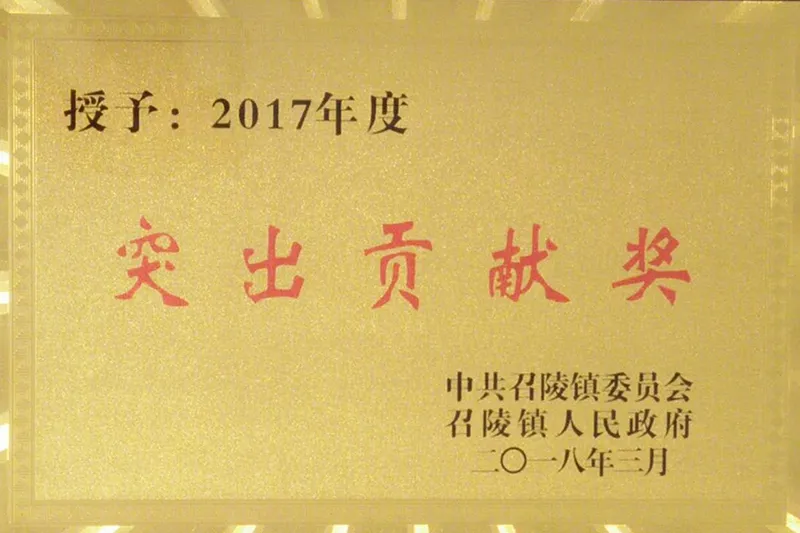 授予：2017年度
突出贡献奖
中共召陵镇委员会
召陵镇人民政府
二〇一八年三月